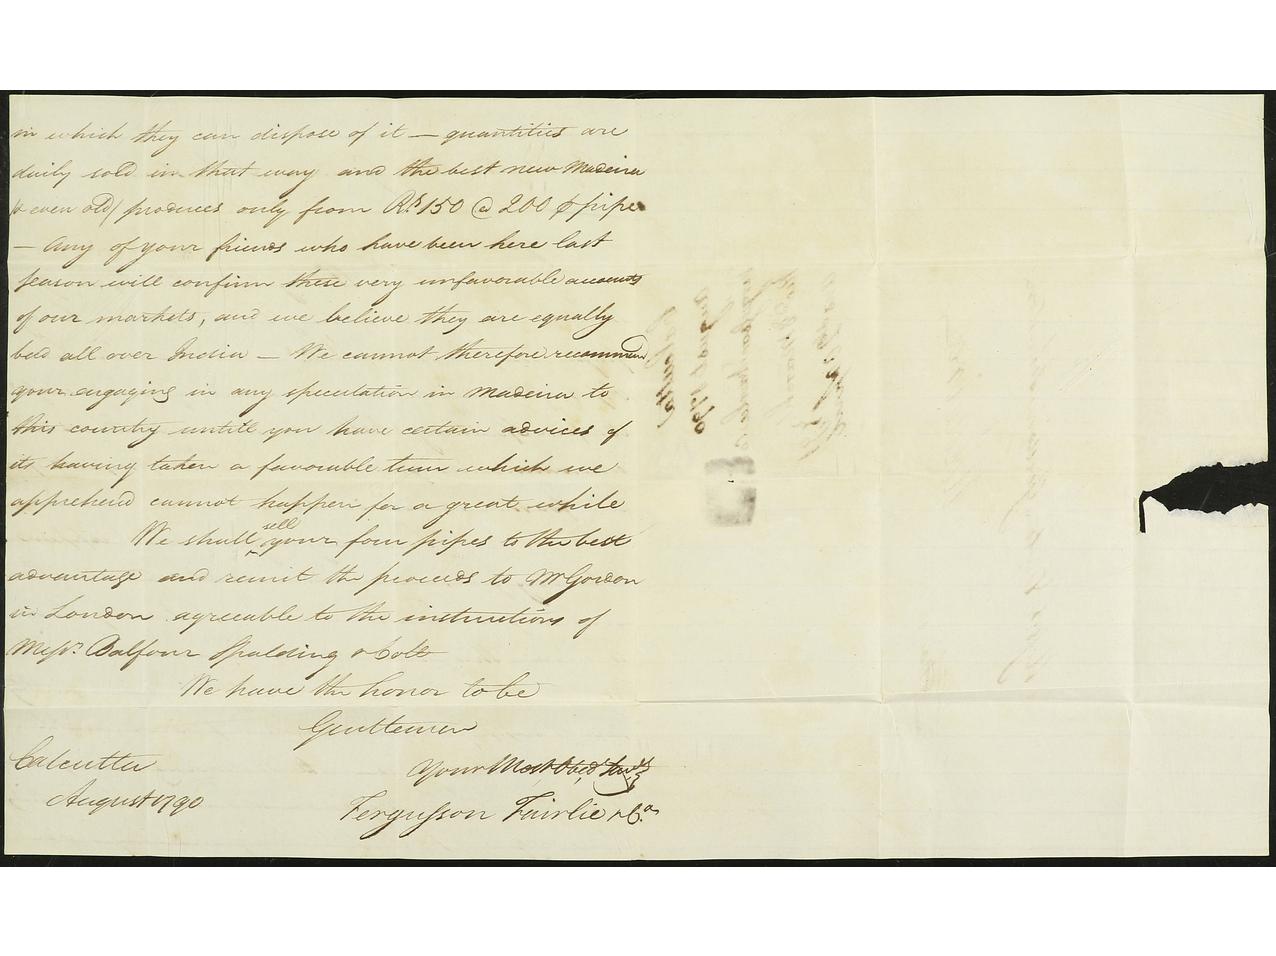 in which they can dispose of it — quantities are
daily sold in that way and the best new Madeira
(& even old) produces only from Rs 150 @ 200 ⅌ pipe
— Any of your friends who have been here last
season will confirm these very unfavorable accounts
of our markets, and we believe they are equally
bad all over India — We cannot therefore recommend
your engaging in any speculation in Madeira to
this country untill you have certain advices of
its having taken a favorable turn which we
apprehend cannot happen for a great while
We shall sell your four pipes to the best
advantage and remit the proceeds to Mr Gordon
in London agreeable to the instructions of
Messrs. Balfour Spalding & Colt
We have the honor to be
Gentlemen
Calcutta
Your Most Obedt Servts
August 1790
Fergusson Fairlie & Co